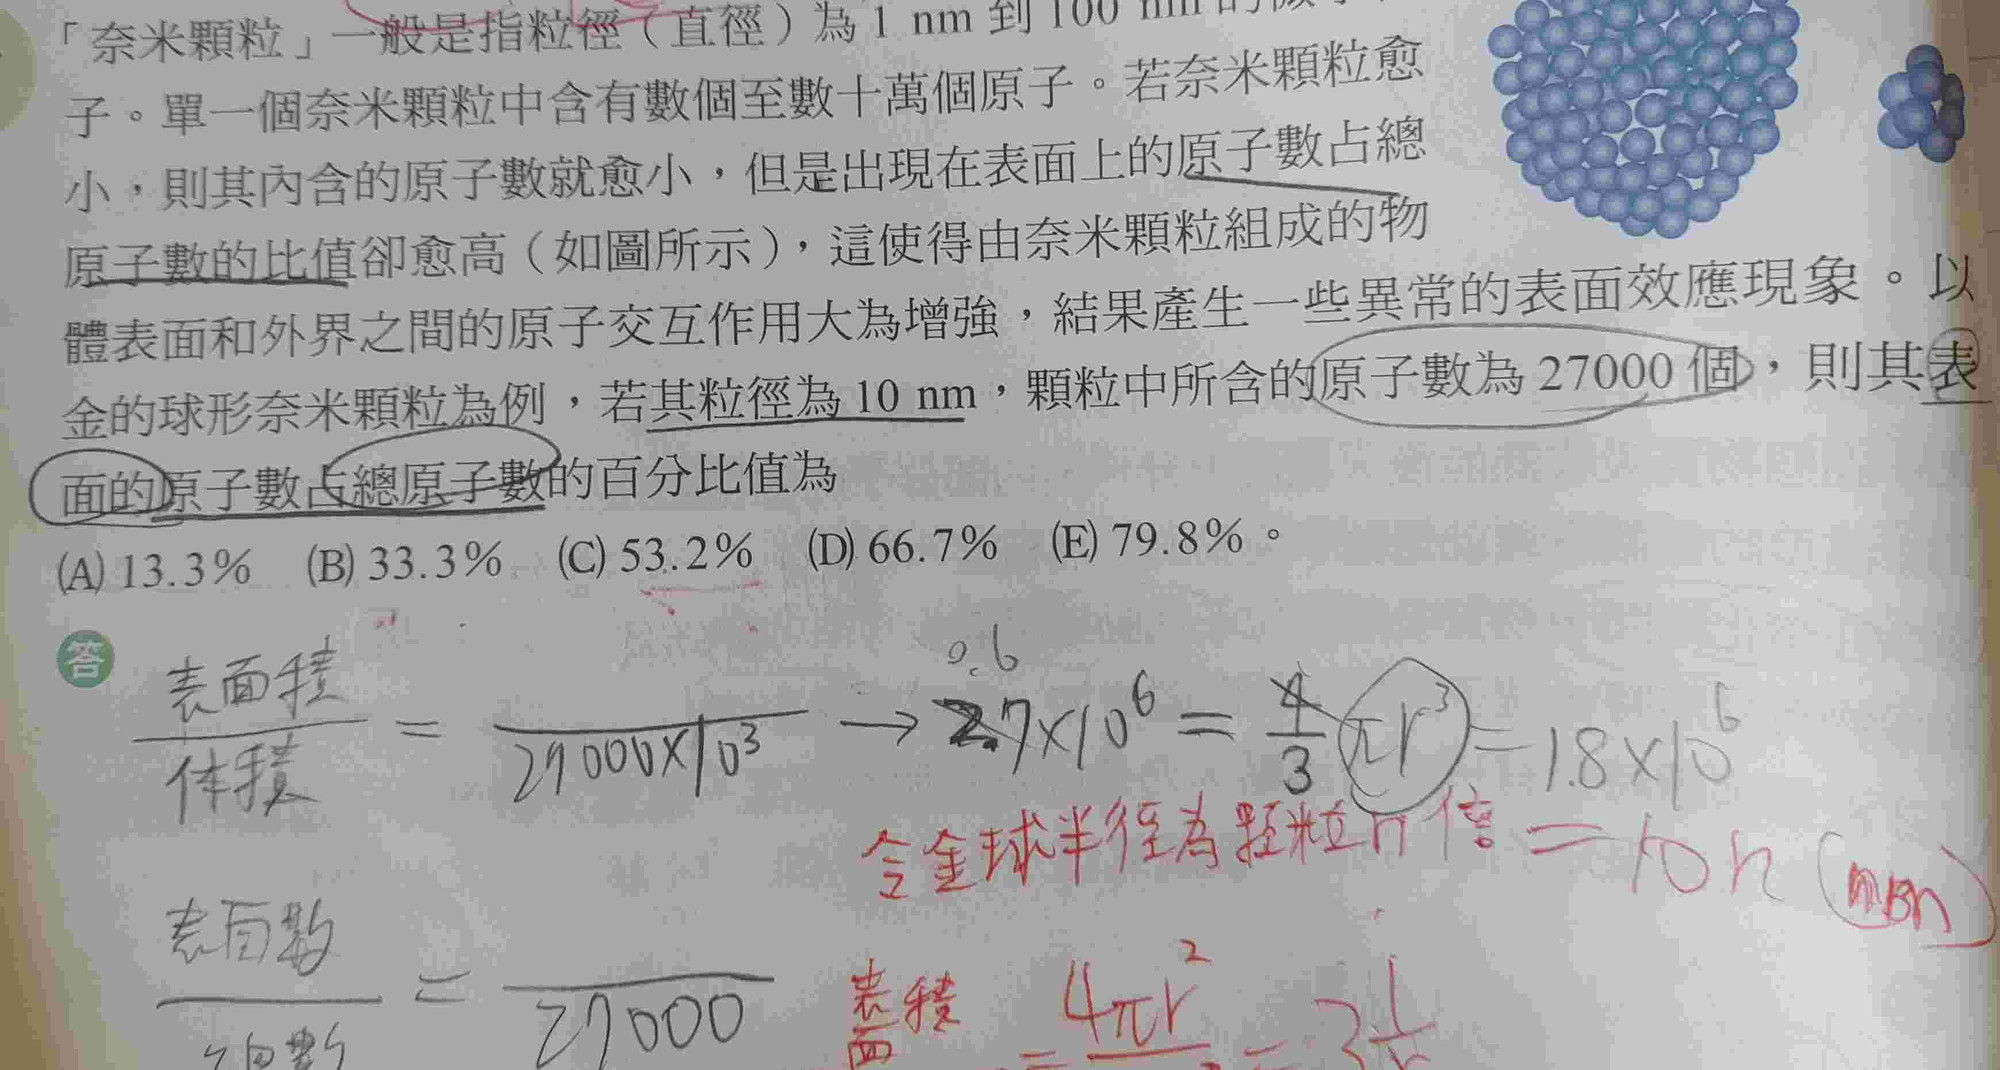 「奈米顆粒」一般是指粒徑（直徑）為 1 nm 到 100 nm 的微
子。單一個奈米顆粒中含有數個至數十萬個原子。若奈米顆粒愈
小，則其內含的原子數就愈小，但是出現在表面上的原子數占總
原子數的比值卻愈高（如圖所示），這使得由奈米顆粒組成的物
體表面和外界之間的原子交互作用大為增強，結果產生一些異常的表面效應現象。以
金的球形奈米顆粒為例，若其粒徑為 10 nm，顆粒中所含的原子數為 27000 個，則其表
面的原子數占總原子數的百分比值為
(A) 13.3% (B) 33.3% (C) 53.2% (D) 66.7% (E) 79.8%。
答
表面積/体積 = /27000×10³ → 2.7×10⁶ = 4/3 πr³ = 1.8×10⁶
0.6
令金球半徑為顆粒n倍 = 10n
表面數/總數 = /27000
表面積 = 4πr² = 3